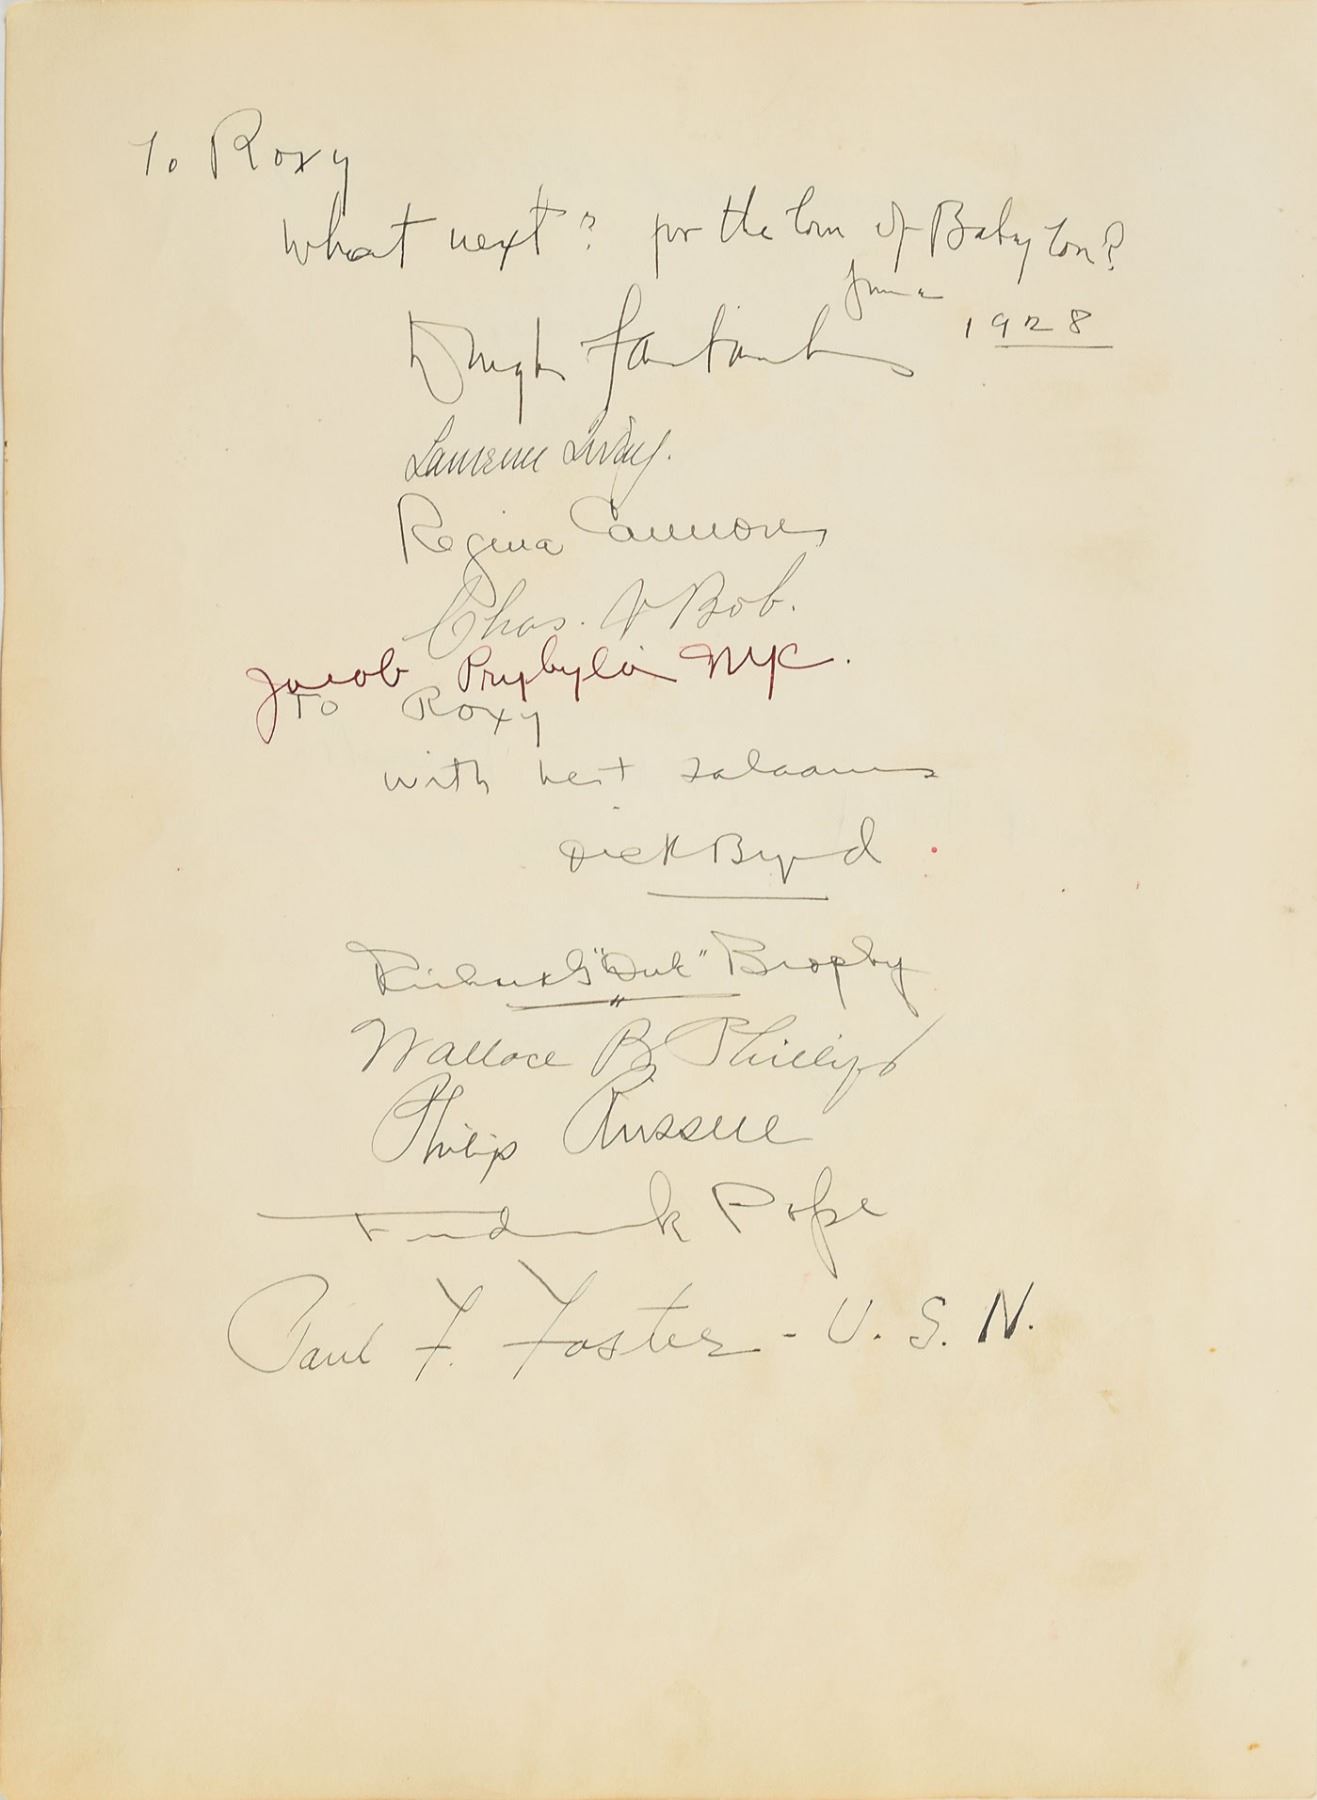 To Roxy
What next? for the Town of Babylon?
June
1928
Douglas Fairbanks
Laurence Irving.
Regina Cannon
Chas. V Bob.
Jacob Prybyla NYC.
To Roxy
with best salaams
Dick Byrd
Richard G "Duk" Brophy
Wallace B Phillips
Philip Russell
Frederick Pope
Paul F. Foster - U. S. N.